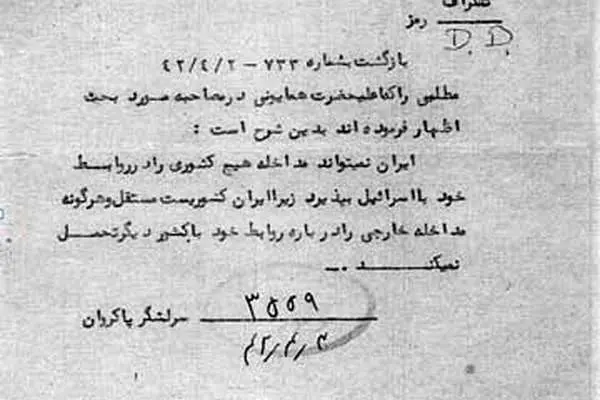 تلگراف
رمز
D. D.
بازگشت بشماره ۷۳۳ – ۴۲/۴/۲
مطلبی راکه اعلیحضرت همایونی در مصاحبه مورد بحث
اظهار فرموده اند بدین شرح است :
ایران نمیتواند مداخله هیچ کشوری را در روابط
خود با اسرائیل بپذیرد زیرا ایران کشوریست مستقل و هرگونه
مداخله خارجی را در باره روابط خود باکشور دیگر تحمل
نمیکند .ـ
سرلشگر پاکروان ۳۵۵۹
۴۲/۴/۳